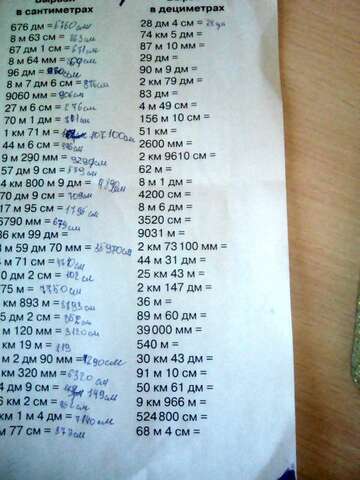 в сантиметрах
676 дм = 6760 см
8 м 63 см = 863 см
67 дм 1 см = 671 см
8 м 64 мм =
96 дм =
8 м 7 дм 6 см = 876 см
9060 мм = 906 см
27 м 6 см = 276 см
70 дм 1 см = 701 см
1 км 71 м =
44 м 6 см =
9 м 290 мм =
57 дм 9 см = 579 см
км 800 м 9 дм =
70 дм 9 см = 709 см
17 м 95 см = 1795 см
6790 мм = 679 см
36 км 99 дм =
м 59 дм 70 мм =
м 71 см =
0 дм 2 см = 102 см
75 м = 7500 см
км 893 м =
5 дм 2 см =
м 120 мм =
км 19 м = 119
м 2 дм 90 мм =
км 320 мм = 6320 см
4 дм 9 см = 149 см
6 км 2 см =
км 1 м 4 дм =
м 77 см = 377 см
в дециметрах
28 дм 4 см =
74 км 5 дм =
87 м 10 мм =
29 дм =
90 м 9 дм =
2 км 79 дм =
83 дм =
4 м 49 см =
156 м 10 см =
51 км =
2600 мм =
2 км 9610 см =
62 м =
8 м 1 дм =
4200 см =
8 м 6 дм =
3520 см =
9031 м =
2 м 73 100 мм =
44 м 31 дм =
25 км 43 м =
2 км 147 дм =
36 м =
89 м 60 дм =
39 000 мм =
540 м =
30 км 43 дм =
91 м 10 см =
50 км 61 дм =
9 км 966 м =
524 800 см =
68 м 4 см =